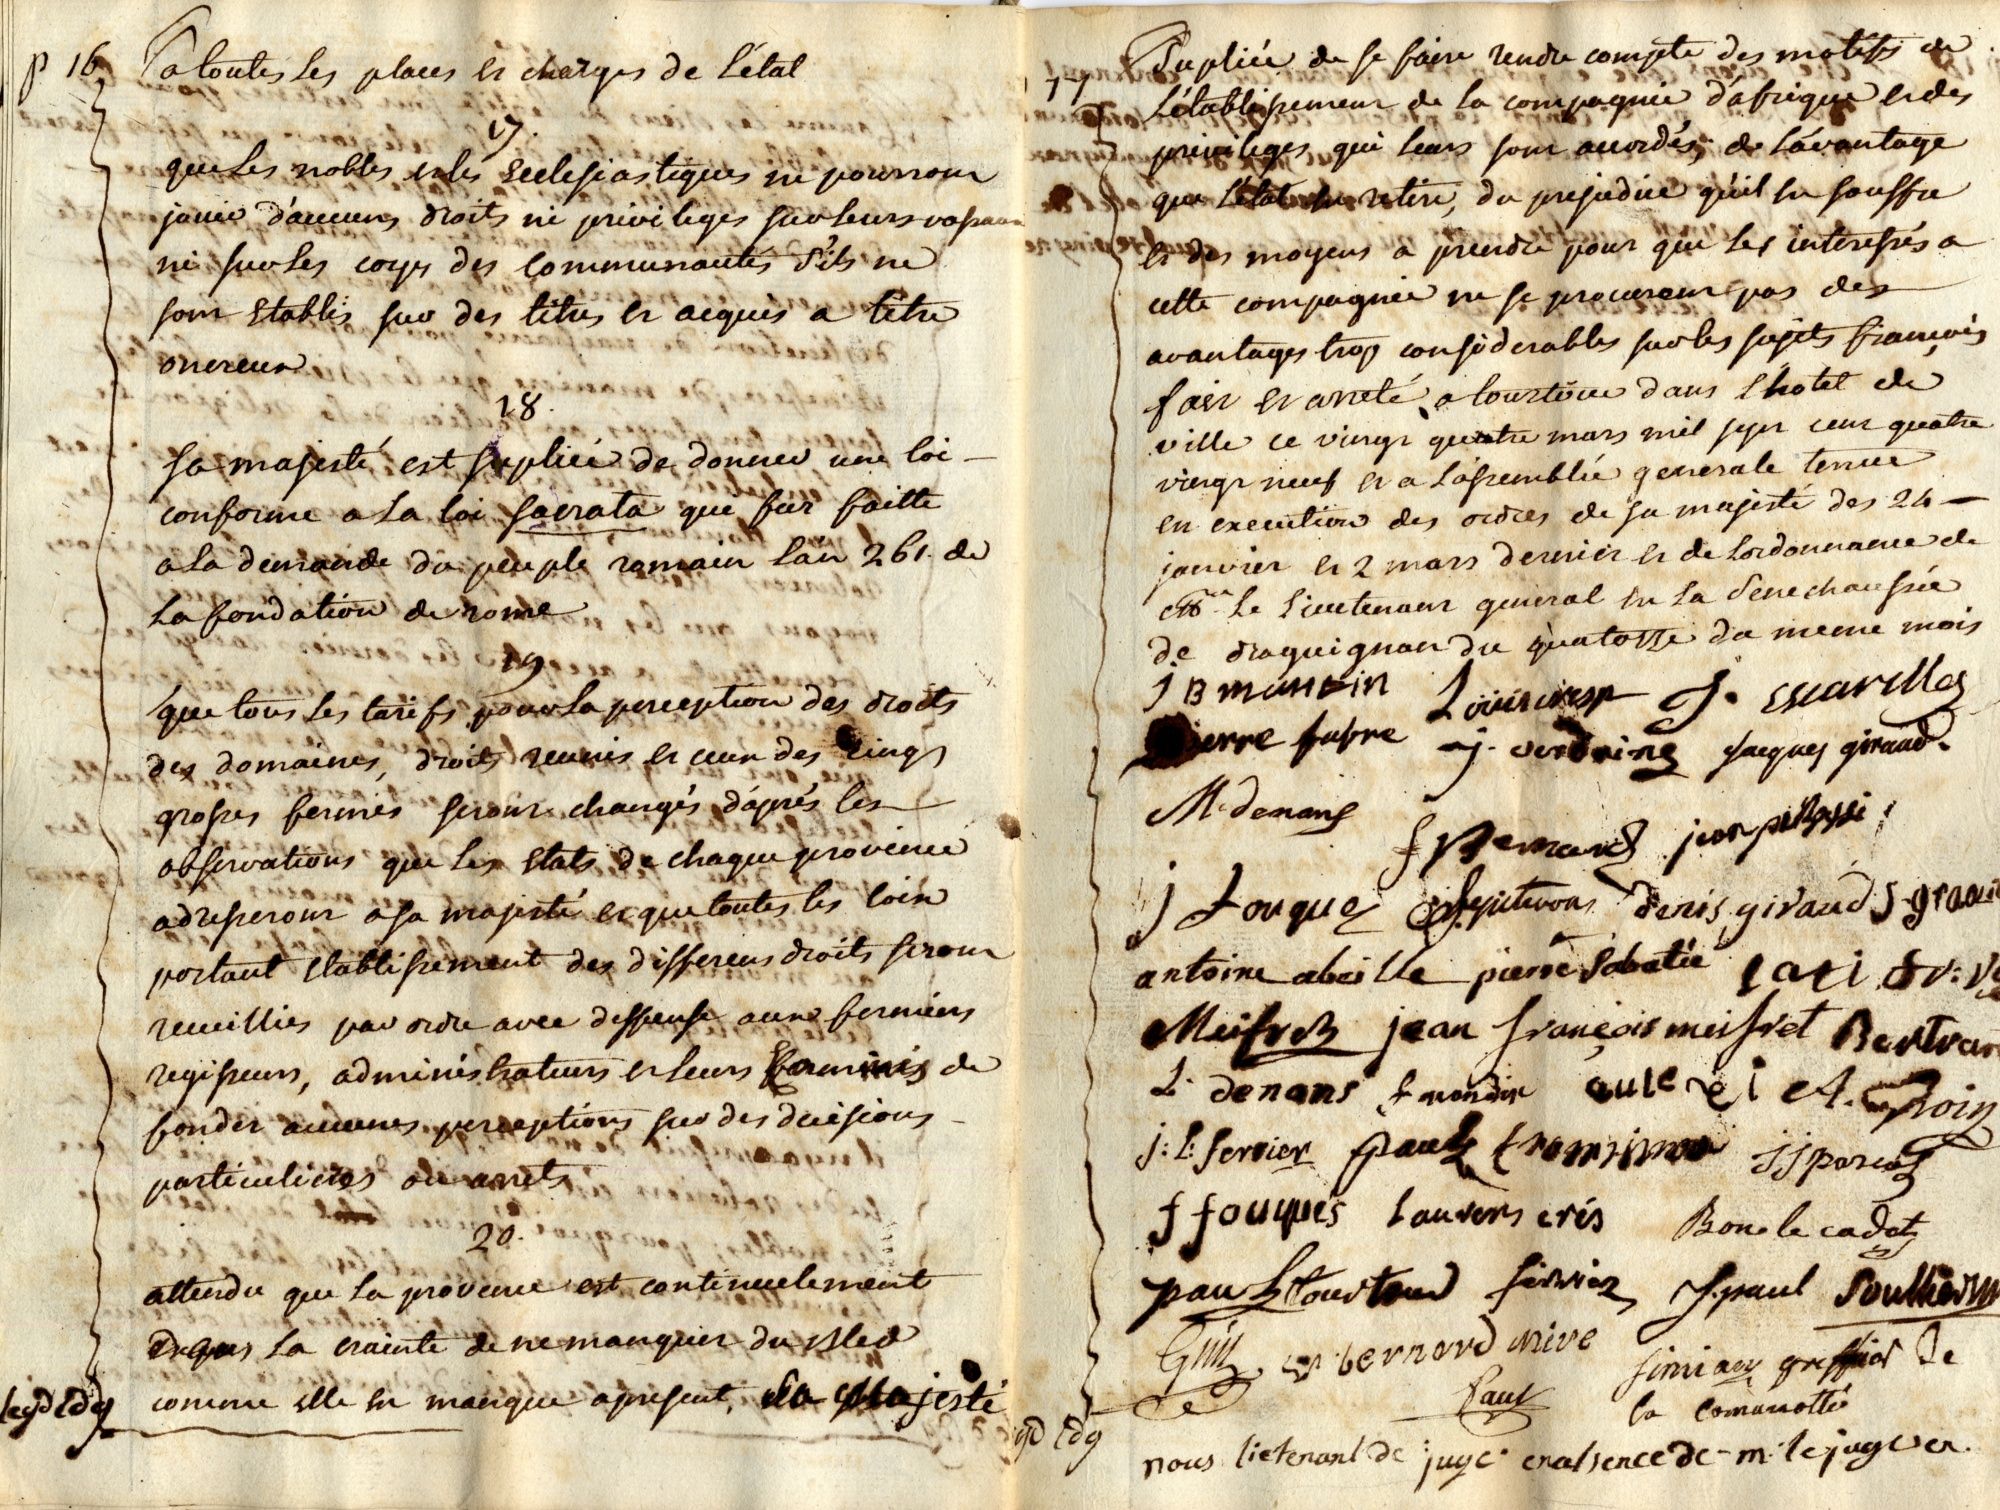 p 16
a toutes les places et charges de l'état
17.
que les nobles et les ecclesiastiques ne pourront
jouir d'aucuns droits ni privileges sur leurs vassaux
ni sur les corps des communautés s'ils ne
sont etablis sur des titres et acquis a titre
onereux
18.
sa majesté est supliée de donner une loi
conforme a la loi sacrata que fut faitte
a la demande du peuple romain l'an 261. de
la fondation de rome
19
que tous les tarifs pour la perception des droits
des domaines, droits reunis et ceux des cinqs
grosses fermes seront changés d'aprés les
observations que les etats de chaque province
adresseront a sa majesté et que toutes les loix
portant etablissement des differens droits seront
recueillies par ordre avec deffense aux fermiers
regisseurs, administrateurs et leurs commis de
fonder aucunes perceptions sur des decisions
particulieres ou arrets
20.
attendu que la provence est continuelement
la crainte de ne manquer du bled
comme elle en manque apresent, sa majesté
17
supliée de se faire rendre compte des motifs de
l'etablissement de la compagnie d'afrique et des
privileges qui leurs sont accordés, de l'avantage
que l'état en retire, du prejudice qu'il en souffre
et des moyens a prendre pour que les interessés a
cette compagnie ne se procurent pas des
avantages trop considerables sur les sujets françois
fait et arreté a tourtour dans l'hotel de
ville ce vingt quatre mars mil sept cent quatre
vingt neuf et a l'assemblée generale tenue
en execution des ordres de sa majesté des 24
janvier et 2 mars dernier et de l'ordonnance de
le lieutenant general en la senechaussée
de draguignan du quatorze du meme mois
J B mantin Louis cresp J. escarelles
pierre fabre j. verdaine jacques giraud
M. denans
f Bernard jean
j fouques denis giraud
antoine abeille pierre sabatié
Meifret jean françois meifret Bertran
L. denans A.
j. L. ferrier paul
f fouques laurens cris Bone le cadet
paul tourtour ferrier J. paul
bernard
simian greffier de
la comunotté
nous lietenant de juge en absence de m. le juge et